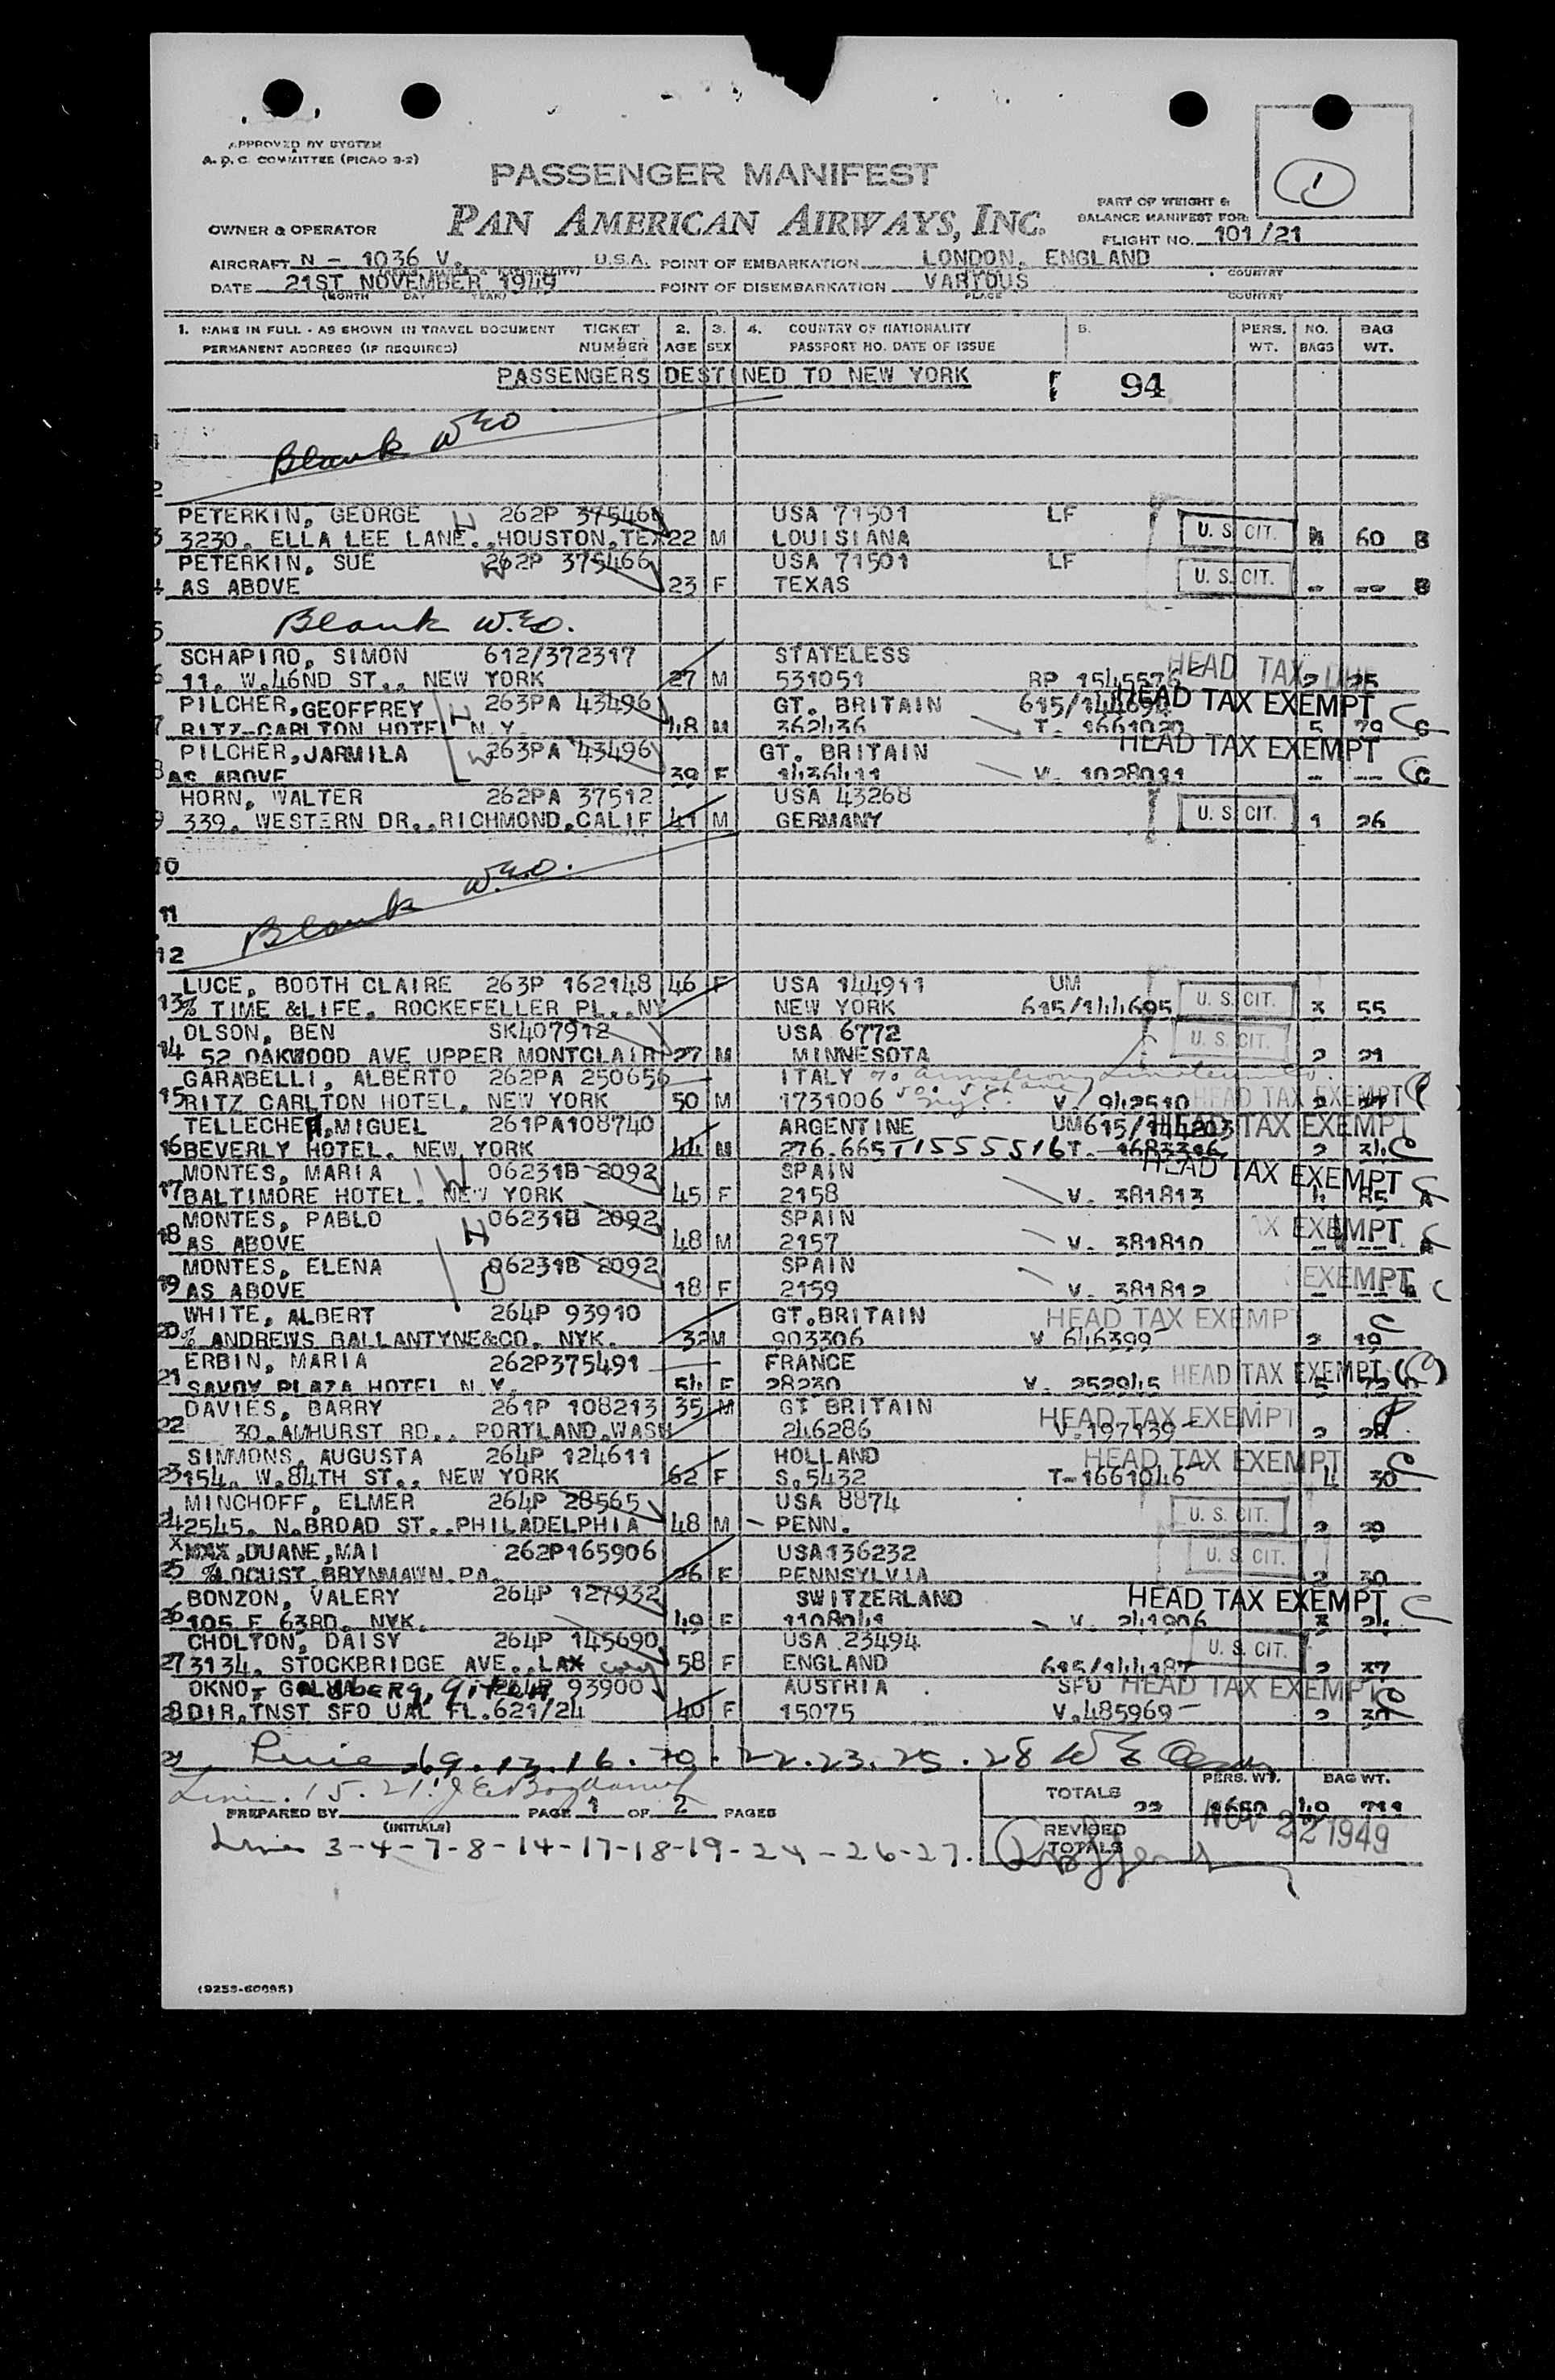 APPROVED BY SYSTEM
A. D. C. COMMITTEE (PICAO 9-2)
1
PASSENGER MANIFEST
PAN AMERICAN AIRWAYS, INC.
PART OF WEIGHT &
BALANCE MANIFEST FOR:
OWNER & OPERATOR
FLIGHT NO. 101/21
AIRCRAFT N - 1036 V. U.S.A. POINT OF EMBARKATION LONDON, ENGLAND
COUNTRY
DATE 21ST NOVEMBER 1949 POINT OF DISEMBARKATION VARIOUS
(MONTH DAY YEAR) PLACE COUNTRY
1. NAME IN FULL - AS SHOWN IN TRAVEL DOCUMENT TICKET 2. 3. 4. COUNTRY OF NATIONALITY 5. PERS. NO. BAG
PERMANENT ADDRESS (IF REQUIRED) NUMBER AGE SEX PASSPORT NO. DATE OF ISSUE WT. BAGS WT.
PASSENGERS DESTINED TO NEW YORK 94
Blank WEO
2
PETERKIN, GEORGE 262P USA 71501 LF
3 3230. ELLA LEE LANE. HOUSTON, TEX 22 M LOUISIANA U. S. CIT. 60 B
PETERKIN, SUE 262P 375466 USA 71501 LF
4 AS ABOVE 23 F TEXAS U. S. CIT. - -- B
5 Blank W.EO.
SCHAPIRO, SIMON 612/372317 STATELESS HEAD TAX DUE
6 11. W.46ND ST., NEW YORK 27 M 531051 RP 2 25
PILCHER, GEOFFREY H 263PA 43496 GT. BRITAIN HEAD TAX EXEMPT
7 RITZ-CARLTON HOTEL N.Y. 48 M 362436 T. 1661020 5 79 C
PILCHER, JARMILA W 263PA 43496 GT. BRITAIN HEAD TAX EXEMPT
8 AS ABOVE 39 F 1436411 V. 1028011 - -- C
HORN, WALTER 262PA 37512 USA 43268
9 339. WESTERN DR., RICHMOND, CALIF 41 M GERMANY U. S. CIT. 1 26
10
11 Blank W.E.O.
12
LUCE, BOOTH CLAIRE 263P 162148 46 F USA 144911 UM
13 % TIME &LIFE. ROCKEFELLER PL., NY NEW YORK 615/144605 U. S. CIT. 3 55
OLSON, BEN SK407912 USA 6772
14 52 OAKWOOD AVE UPPER MONTCLAIR 27 M MINNESOTA U. S. CIT. 2 21
GARABELLI, ALBERTO 262PA 250656 ITALY
15 RITZ CARLTON HOTEL. NEW YORK 50 M 1731006 V. 942510 HEAD TAX EXEMPT
TELLECHEA, MIGUEL 261PA108740 ARGENTINE UM HEAD TAX EXEMPT
16 BEVERLY HOTEL. NEW YORK 44 M 276.665 T1555516 T. 2 34 C
MONTES, MARIA W 06231B 2092 SPAIN HEAD TAX EXEMPT
17 BALTIMORE HOTEL. NEW YORK 45 F 2158 V. 381813 4 85 A
MONTES, PABLO H 06231B 2092 SPAIN TAX EXEMPT
18 AS ABOVE 48 M 2157 V. 381810
MONTES, ELENA D 06231B 2092 SPAIN EXEMPT
19 AS ABOVE 18 F 2159 V. 381812 C
WHITE, ALBERT 264P 93910 GT.BRITAIN HEAD TAX EXEMPT C
20 % ANDREWS BALLANTYNE&CO. NYK. 32 M 903306 V 646399 2 19
ERBIN, MARIA 262P375491 FRANCE HEAD TAX EXEMPT (C)
21 SAVOY PLAZA HOTEL N.Y. 54 F 28230 V. 252945 5
DAVIES, BARRY 261P 108213 35 M GT BRITAIN HEAD TAX EXEMPT
22 30. AMHURST RD., PORTLAND, WASH 246286 V.197139 2
SIMMONS, AUGUSTA 264P 124611 HOLLAND HEAD TAX EXEMPT C
23 154. W.84TH ST., NEW YORK 62 F S.5432 T-1661046 4 30
MINCHOFF, ELMER 264P 28565 USA 8874
24 2545. N.BROAD ST., PHILADELPHIA 48 M PENN. U. S. CIT. 2 20
DUANE, MAI 262P165906 USA136232
25 % LOCUST BRYNMAWN.PA. 26 F PENNSYLVIA U. S. CIT. 2 30
BONZON, VALERY 264P 127932 SWITZERLAND HEAD TAX EXEMPT C
26 105 E 63RD. NYK. 49 F 1108041 V. 241906 3 24
CHOLTON, DAISY 264P 145690 USA 23494
27 3134. STOCKBRIDGE AVE., LAX 58 F ENGLAND 615/144187 U. S. CIT. 2 37
OKNO, 93900 AUSTRIA SFO HEAD TAX EXEMPT
28 DIR.TNST SFO UAL FL.621/24 40 F 15075 V.485969 2 30
Line 6 9. 13. 16. 20. 22. 23. 25. 28
Line. 15. 21.
PREPARED BY (INITIALS) PAGE 1 OF 2 PAGES
TOTALS 22 PERS. WT. BAG WT. 49 711
REVISED TOTALS NOV 22 1949
Line 3-4-7-8-14-17-18-19-24-26-27.